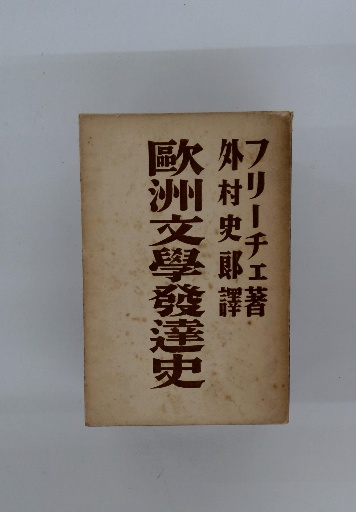 フリーチェ著
外村史郎譯
歐洲文學發達史